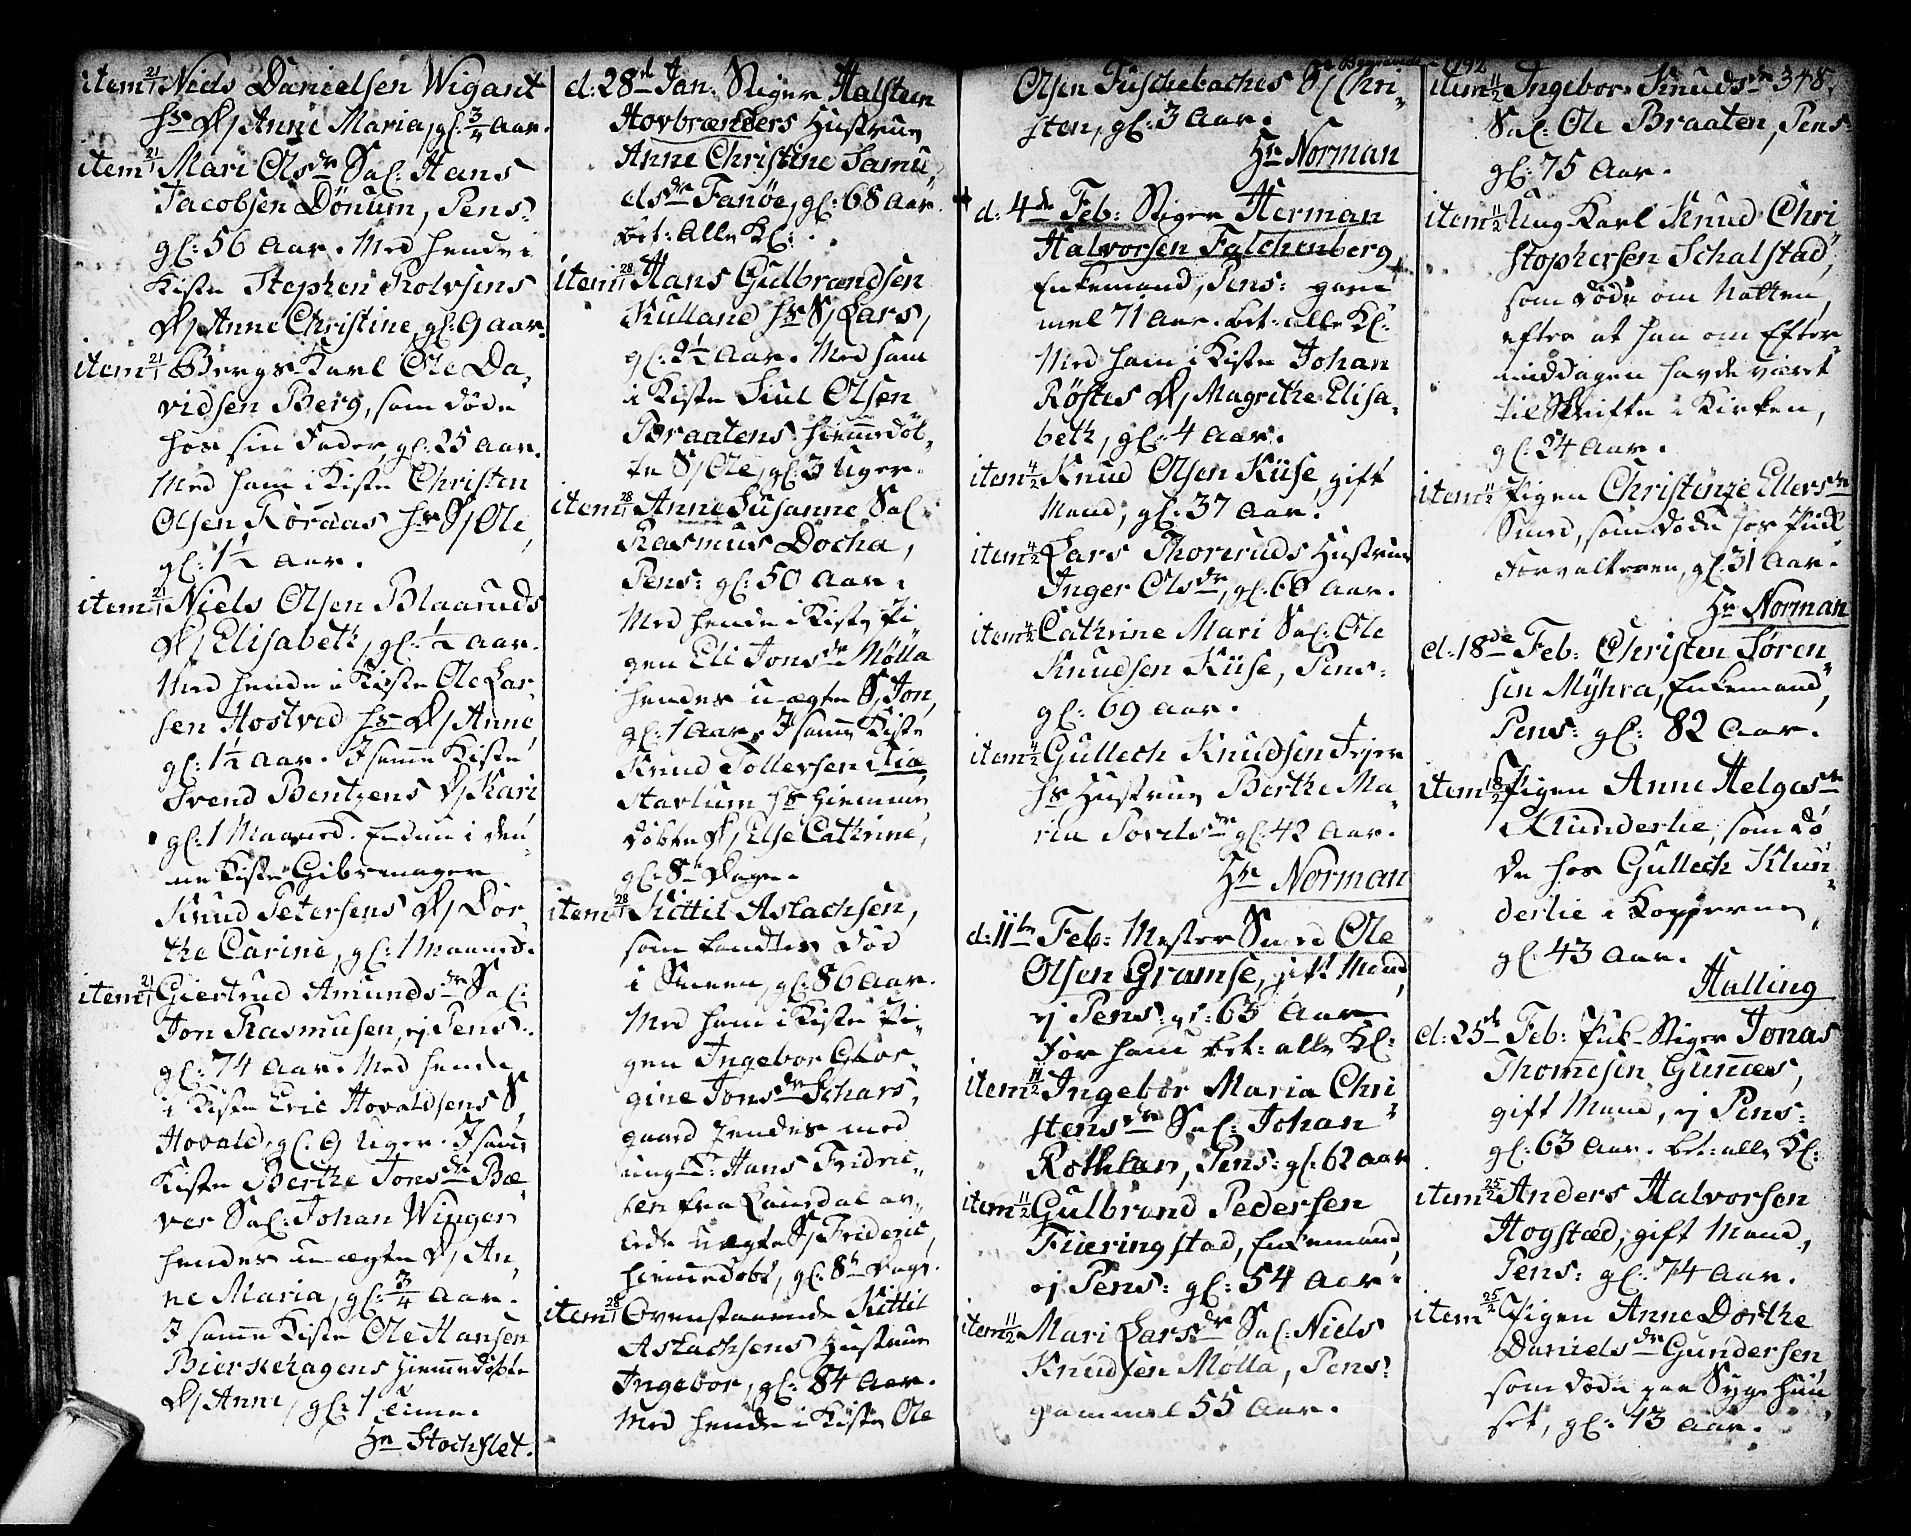 item 21/1 Niels Danielsen Wigant
hs D/ Anne Maria, gl: 3/4 Aar.
item 21/1 Mari Olsdr Sal: Hans
Jacobsen Dönum, Pens:
gl: 56 Aar. Med hende i
Kiste Stephen Rolvsens
D/ Anne Christine, gl: 9 aar.
item 21/1 Bergs-Karl Ole Da,
vidsen Berg, som døde
hos sin Fader, gl: 25 Aar.
Med ham i Kiste Christen
Olsen Röraas hs S/ Ole,
gl: 1½ Aar.
item 21/1 Niels Olsen Blaaruds
D/ Elisabeth, gl: ½ Aar.
Med hende i Kiste Ole Lar,
sen Hostved hs D/ Anne,
gl: 1½ Aar. I samme Kiste
Svend Bentzens D/ Kari
gl: 1 Maaned. Endnu i den,
ne Kiste Gibsmager
Knud Petersens D/ Dor,
the Carine, gl: 1 Maaned.
item 21/1 Giertrud Amundsdr Sal:
Jon Rasmusen, ej Pens:
gl: 74 Aar. Med hende
i Kiste Eric Hovaldsens S,
Hovald, gl: 9 Uger. I samme
Kiste Berthe Jonsdr Bæ,
ver Sal: Johan Winger
hendes uægte D/ An,
ne Maria, gl: 3/4 Aar.
I samme Kiste Ole Hansen
Bierskehagens hiemmedøbte
D/ Anne, gl: 1 Time.
Hr Stochflet.
d: 28de Jan: Stiger Halsteen
Hovbrænders Hustrue
Anne Christine Samu,
elsdr Fanöe, gl: 68 Aar.
bet: Alle Kl:
item 28/1 Hans Gulbrandsen
Kulland hs S/ Lars,
gl: 2½ Aar. Med ham
i Kiste Siul Olsen
Braatens hiemmedøb,
te S/ Ole, gl: 3 Uger.
item 28/1 Anne Susanne Sal:
Rasmus Docha,
Pens: gl: 50 Aar.
Med hende i Kiste Pi
gen Eli Jonsdr Mølla
hendes uægte S/ Jon,
gl: 1 Aar. I samme Kiste
Knud Tollefsen
Starlum hs hiemme
døbte D/ Else Cathrine,
gl: 8te Dage.
item 28/1 Kittil Aslachsen,
som fandtes død
i Sneen, gl: 86 Aar.
Med ham i Kiste Pi,
gen Ingebor Geor,
gine Jonsdr Schars,
gaard hendes med
ungk: Hans Fridric,
sen fra Laurdal av,
lede uægte S/ Frideric,
hiemmedøbt, gl: 8te Dage.
item 28/1 Ovenstaaende Kittil
Aslachsens Hustrue
Ingebor, gl: 84 Aar.
Med hende i Kiste Ole
Begravede 1792
Olsen Fuschebaches S/ Chri,
sten, gl: 3 Aar.
Hr Norman
d: 4de Feb: Stiger Herman
Halvorsen Falchenberg
Enkemand, Pens: gam
mel 71 Aar. bet: alle Kl:
Med ham i Kiste Johan
Röstes D/ Magrethe Elisa,
beth, gl: 4 Aar.
item 4/2 Knud Olsen Küse, gift
Mand, gl: 37 Aar.
item 4/2 Lars Thoreruds Hustrue
Inger Olsdr, gl: 68 Aar.
item 4/2 Cathrine Mari Sal: Ole
Knudsen Küse, Pens:
gl: 69 Aar.
item 4/2 Gullech Knudsen Tejer
hs Hustrue Berthe Ma,
ria Povelsdr gl: 42 Aar.
Hr Norman
d: 11te Feb: Mester Smed Ole
Olsen Gramse, gift Mand,
ej Pens: gl: 63 Aar
for ham bet: alle Kl:
item 11/2 Ingebor Maria Chri
stensdr Sal: Johan
Rothlan, Pens: gl: 62 aar
item 11/2 Gulbrand Pedersen
Füeringstad, Enkemand,
ej Pens: gl: 54 Aar.
item 11/2 Mari Larsdr Sal: Niels
Knudsen Mølla, Pens:
gammel 55 Aar.
348.
item 11/2 Ingebor Knudsdr
Sal: Ole Braaten, Pens:
gl: 75 Aar.
item 11/2 Ung Karl Knud Chri
stophersen Schalstad,
som døde om Natten,
efter at han om Efter,
middagen havde været
til Skrifte i Kirken,
gl: 24 Aar.
item 11/2 Pigen Christense Ellersdr
Smed, som døde hos Puk
forvalteren, gl: 31 Aar.
Hr Norman
d: 18de Feb: Christen Sören,
sen Mÿhra, Enkemand,
Pens: gl: 82 Aar.
item 18/2 Pigen Anne Helgesdr
Klunderlie, som dö
de hos Gullech Klun,
derlie i Kopperne,
gl: 43 Aar.
Halling
d: 25de Feb: Puk-Stiger Jonas
Thomesen Gunnes,
gift Mand, ej Pens:
gl: 63 Aar. bet: alle Kl:
item 25/2 Anders Halvorsen
Hogstæd, gift Mand,
Pens: gl: 74 Aar.
item 25/2 Pigen Anne Dorthe
Danielsdr Gundersen
som døde paa Sygehuu
set, gl: 43 Aar.